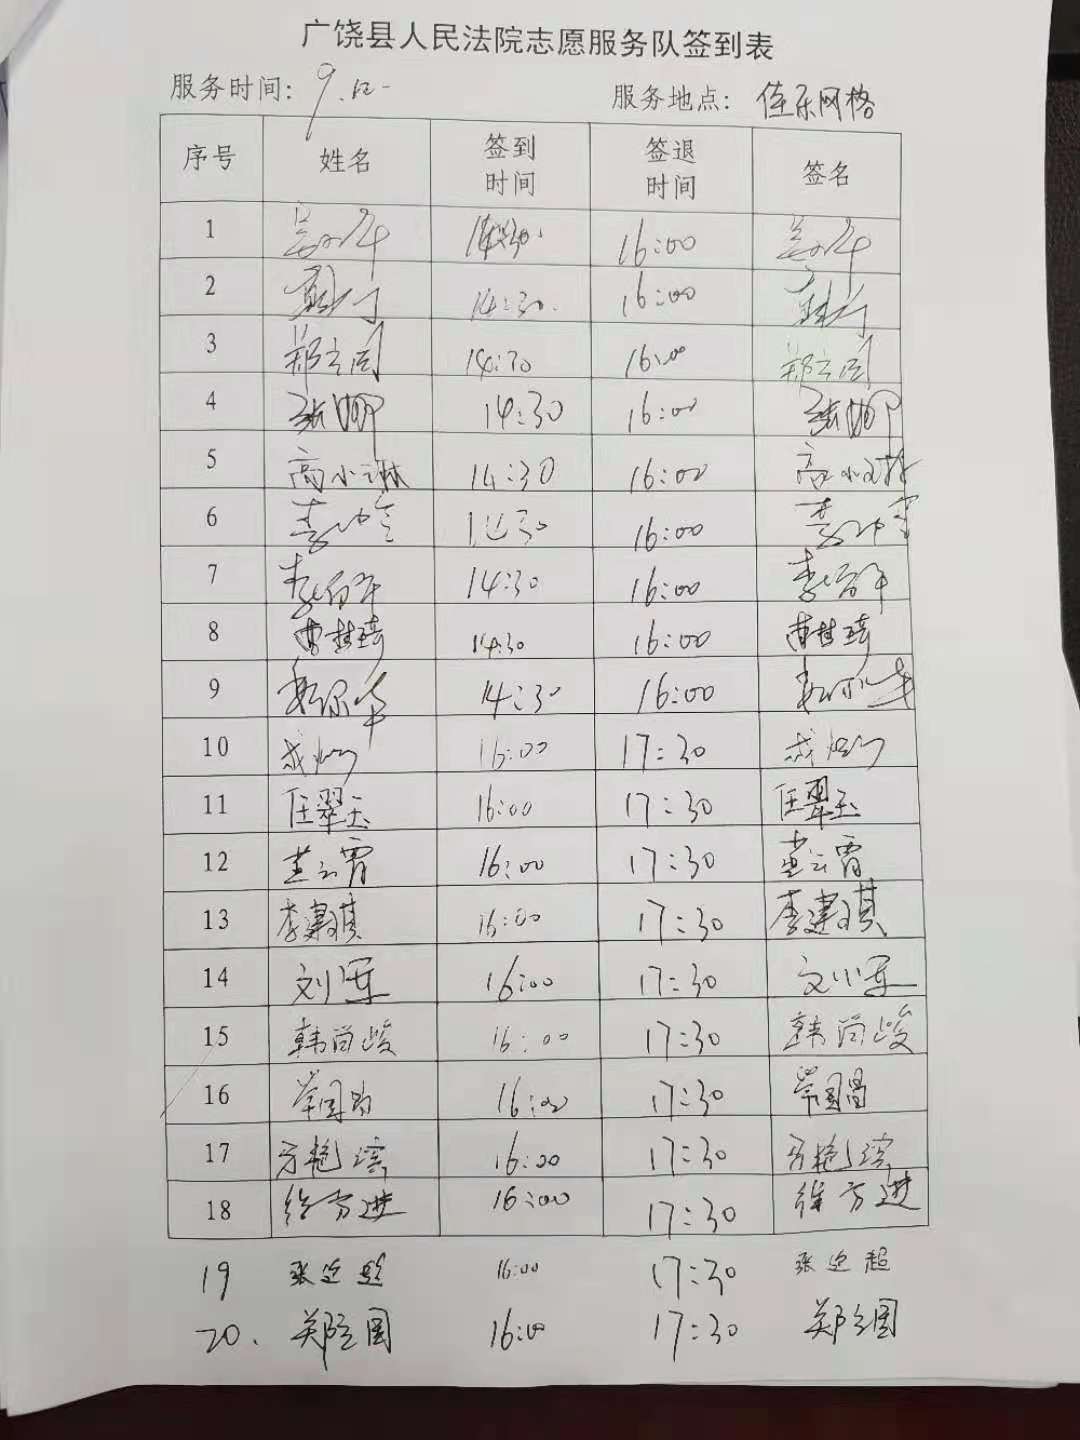 广饶县人民法院志愿服务队签到表
服务时间: 9.
服务地点: 佳乐网格
序号 姓名 签到时间 签退时间 签名
1 16:00
2 14:30. 16:00
3 郑立国 14:30 16:00 郑立国
4 张娜 14:30 16:00 张娜
5 高小琳 14:30 16:00 高小琳
6 李 30 16:00 李
7 李 14:30 16:00 李
8 曹桂琦 14:30 16:00 曹桂琦
9 14:30 16:00
10 成灿 16:00 17:30 成灿
11 任翠玉 16:00 17:30 任翠玉
12 董云霄 16:00 17:30 董云霄
13 李建琪 16:00 17:30 李建琪
14 刘军 16:00 17:30 刘军
15 韩尚峻 16:00 17:30 韩尚峻
16 常国昌 16:00 17:30 常国昌
17 16:00 17:30
18 徐方进 16:00 17:30 徐方进
19 张迎超 16:00 17:30 张迎超
20. 郑立国 16:00 17:30 郑立国